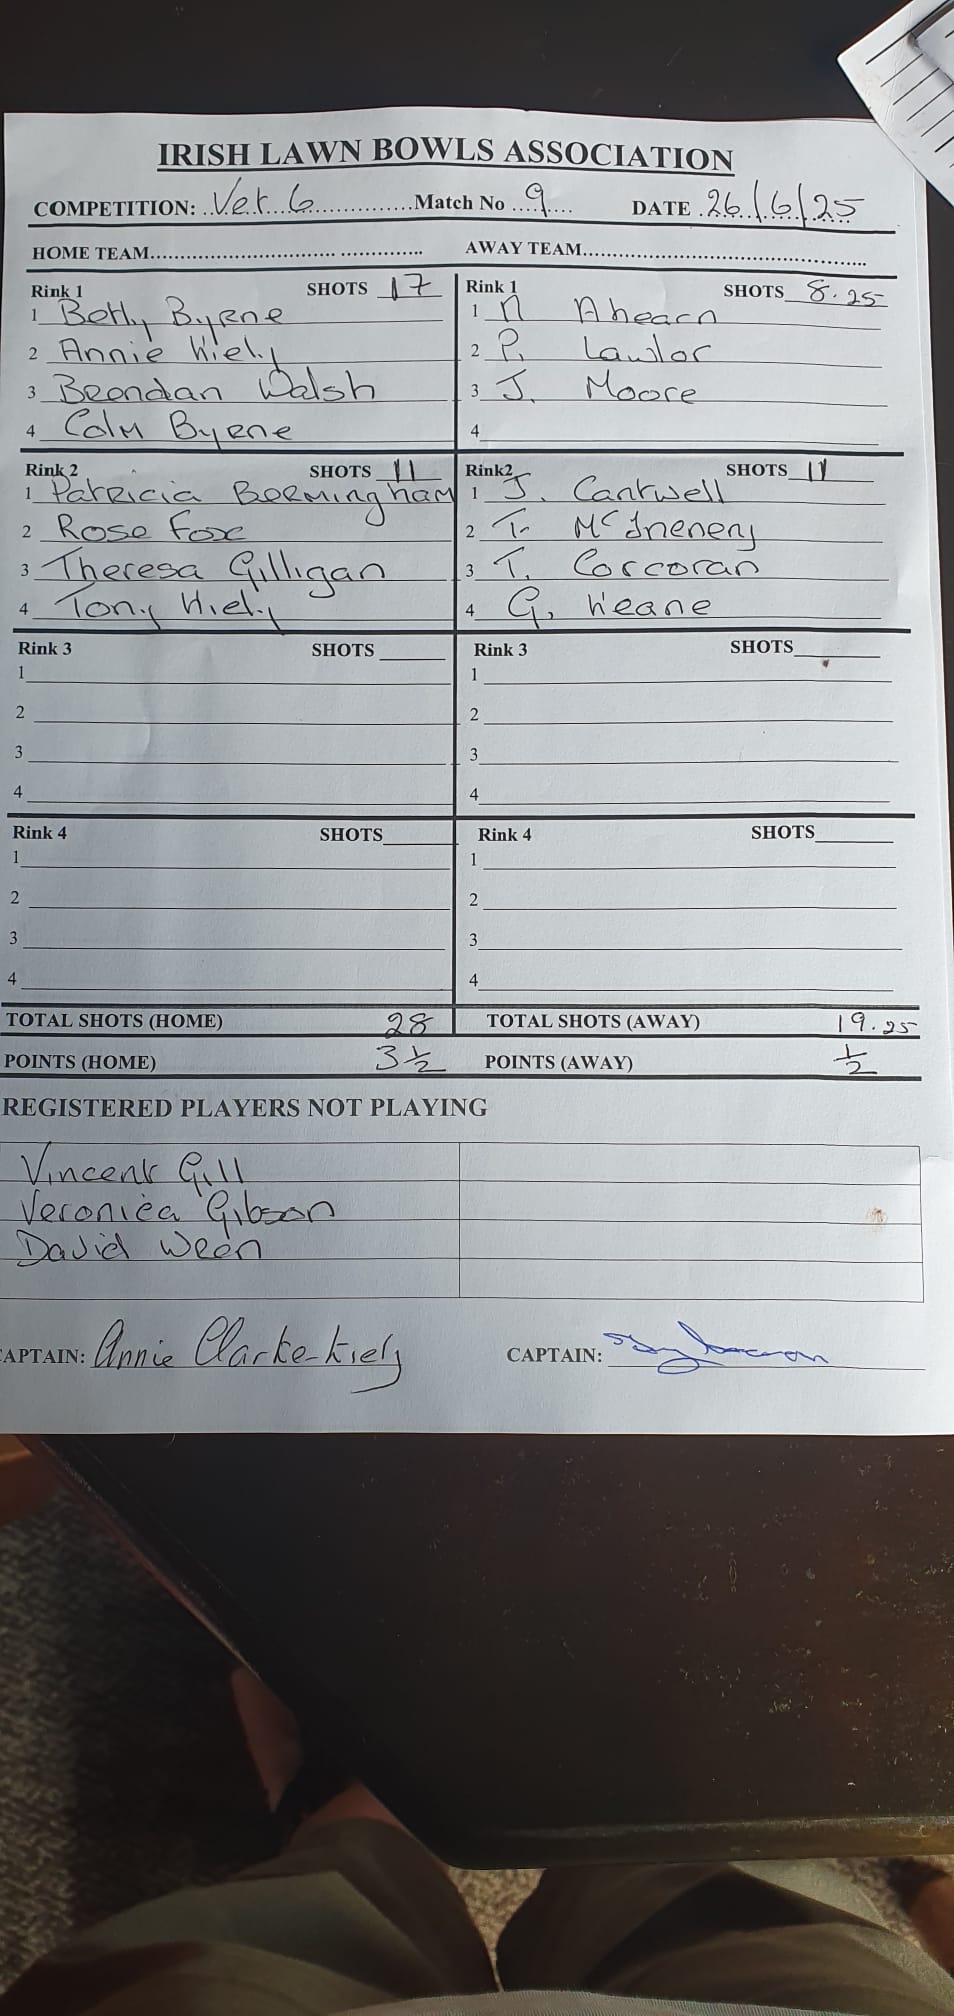 IRISH LAWN BOWLS ASSOCIATION
COMPETITION: Vet. 6 Match No 9 DATE 26/6/25
HOME TEAM AWAY TEAM
Rink 1 SHOTS 17
1 Betty Byrne
2 Annie Kiely
3 Brendan Walsh
4 Colm Byrne
Rink 1 SHOTS 8.25
1 N Ahearn
2 P. Lawlor
3 J. Moore
4
Rink 2 SHOTS 11
1 Patricia Bermingham
2 Rose Fox
3 Theresa Gilligan
4 Tony Kiely
Rink2 SHOTS 11
1 J. Cantwell
2 T. McInenery
3 T. Corcoran
4 G. Keane
Rink 3 SHOTS
1
2
3
4
Rink 3 SHOTS
1
2
3
4
Rink 4 SHOTS
1
2
3
4
Rink 4 SHOTS
1
2
3
4
TOTAL SHOTS (HOME) 28 TOTAL SHOTS (AWAY) 19.25
POINTS (HOME) 3½ POINTS (AWAY) ½
REGISTERED PLAYERS NOT PLAYING
Vincent Gill
Veronica Gibson
David Ween
CAPTAIN: Annie Clarke-Kiely CAPTAIN: